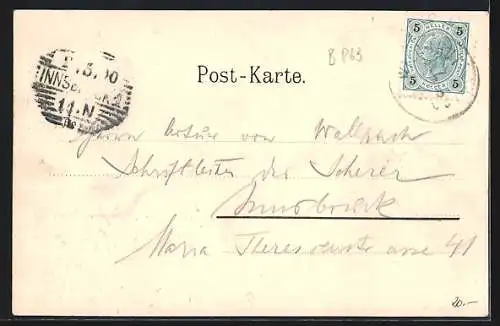 B P63
5 5
5 5
INNSBRUCK 2
11.N
Post-Karte.
Herrn Artur von Wallpach
Schriftleiter des Scherer
Innsbruck
Maria Theresienstrasse 41
20.-